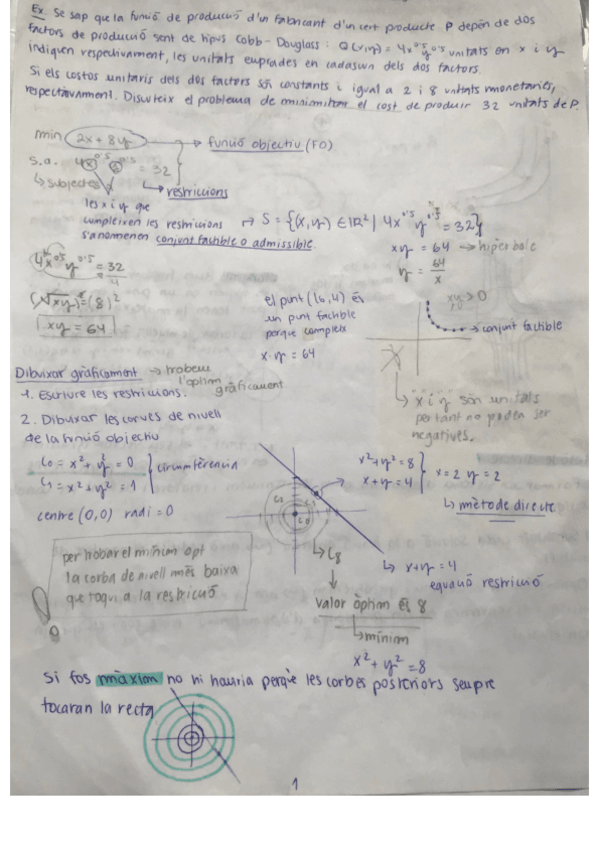 Ex. Se sap que la funció de producció d'un fabricant d'un cert producte P depèn de dos
factors de producció sent de tipus Cobb-Douglass: Q(x,y) = 4x^0'5 y^0'5 unitats on x i y
indiquen respectivament, les unitats emprades en cadascun dels dos factors.
Si els costos unitaris dels dos factors són constants i igual a 2 i 8 unitats monetàries,
respectivament. Discuteix el problema de minimitzar el cost de produir 32 unitats de P.
min 2x + 8y → funció objectiu (FO)
s.a. 4x^0'5 y^0'5 = 32
↳ subjectes ↳ restriccions
les x i y que
compleixen les restriccions → S = {(x,y) ∈ IR² | 4x^0'5 y^0'5 = 32}
s'anomenen conjunt factible o admissible.
xy = 64 → hipèrbole
y = 64/x
4x^0'5 y^0'5 = 32/4
(√xy)² = (8)²
xy = 64
el punt (16,4) és
un punt factible
perquè compleix
x·y = 64
→ conjunt factible
↳ x i y són unitats
per tant no poden ser
negatives.
Dibuixar gràficament → trobem
l'òptim
gràficament
1. Escriure les restriccions.
2. Dibuixar les corves de nivell
de la funció objectiu
C0 = x² + y² = 0
C1 = x² + y² = 1 } circumferència
centre (0,0) radi = 0
x² + y² = 8
x + y = 4 } x = 2 y = 2
↳ mètode directe
C0
C8
↳ x + y = 4
equació restricció
per trobar el mínim opt
la corba de nivell més baixa
que toqui a la restricció
valor òptim és 8
↳ mínim
x² + y² = 8
Si fos màxim no hi hauria perquè les corbes posteriors sempre
tocaran la recta
1